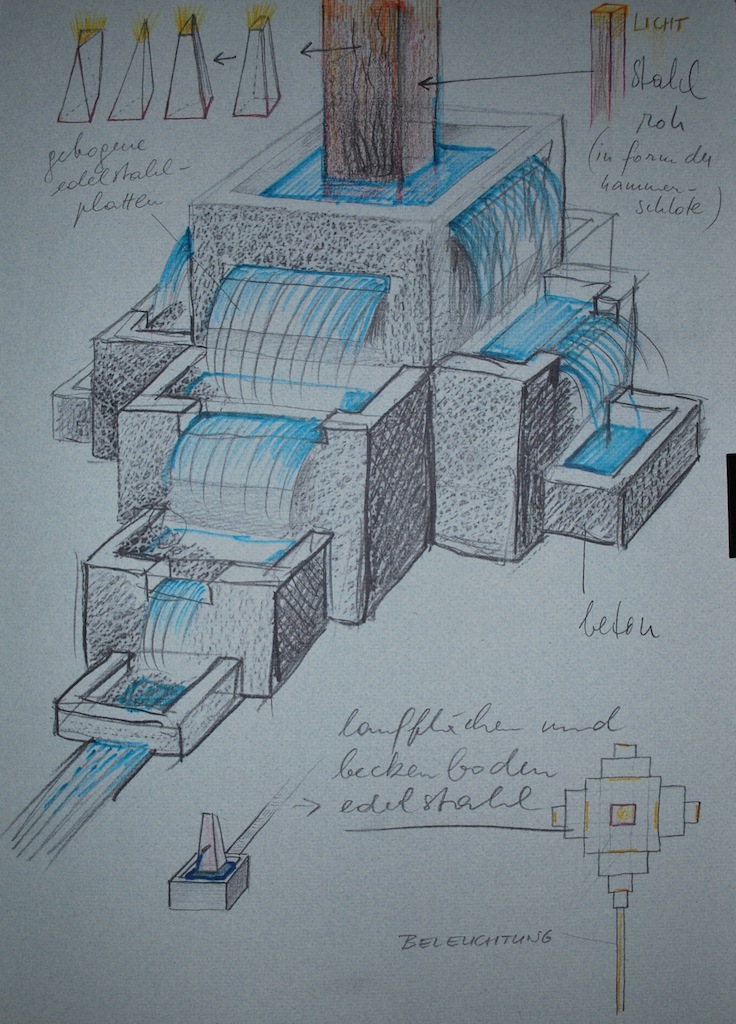 LICHT
stahl
roh
(in form der
hammer-
schlote)
gebogene
edelstahl-
platten
beton
laufflächen und
beckenboden
edelstahl
BELEUCHTUNG